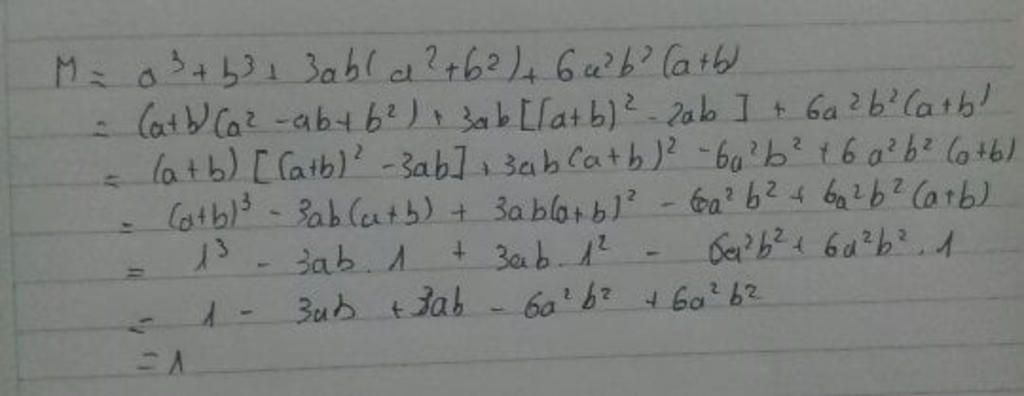 M = a³ + b³ + 3ab(a² + b²) + 6a²b²(a+b)
= (a+b)(a² - ab + b²) + 3ab[(a+b)² - 2ab] + 6a²b²(a+b)
= (a+b)[(a+b)² - 3ab] + 3ab(a+b)² - 6a²b² + 6a²b²(a+b)
= (a+b)³ - 3ab(a+b) + 3ab(a+b)² - 6a²b² + 6a²b²(a+b)
= 1³ - 3ab.1 + 3ab.1² - 6a²b² + 6a²b².1
= 1 - 3ab + 3ab - 6a²b² + 6a²b²
= 1